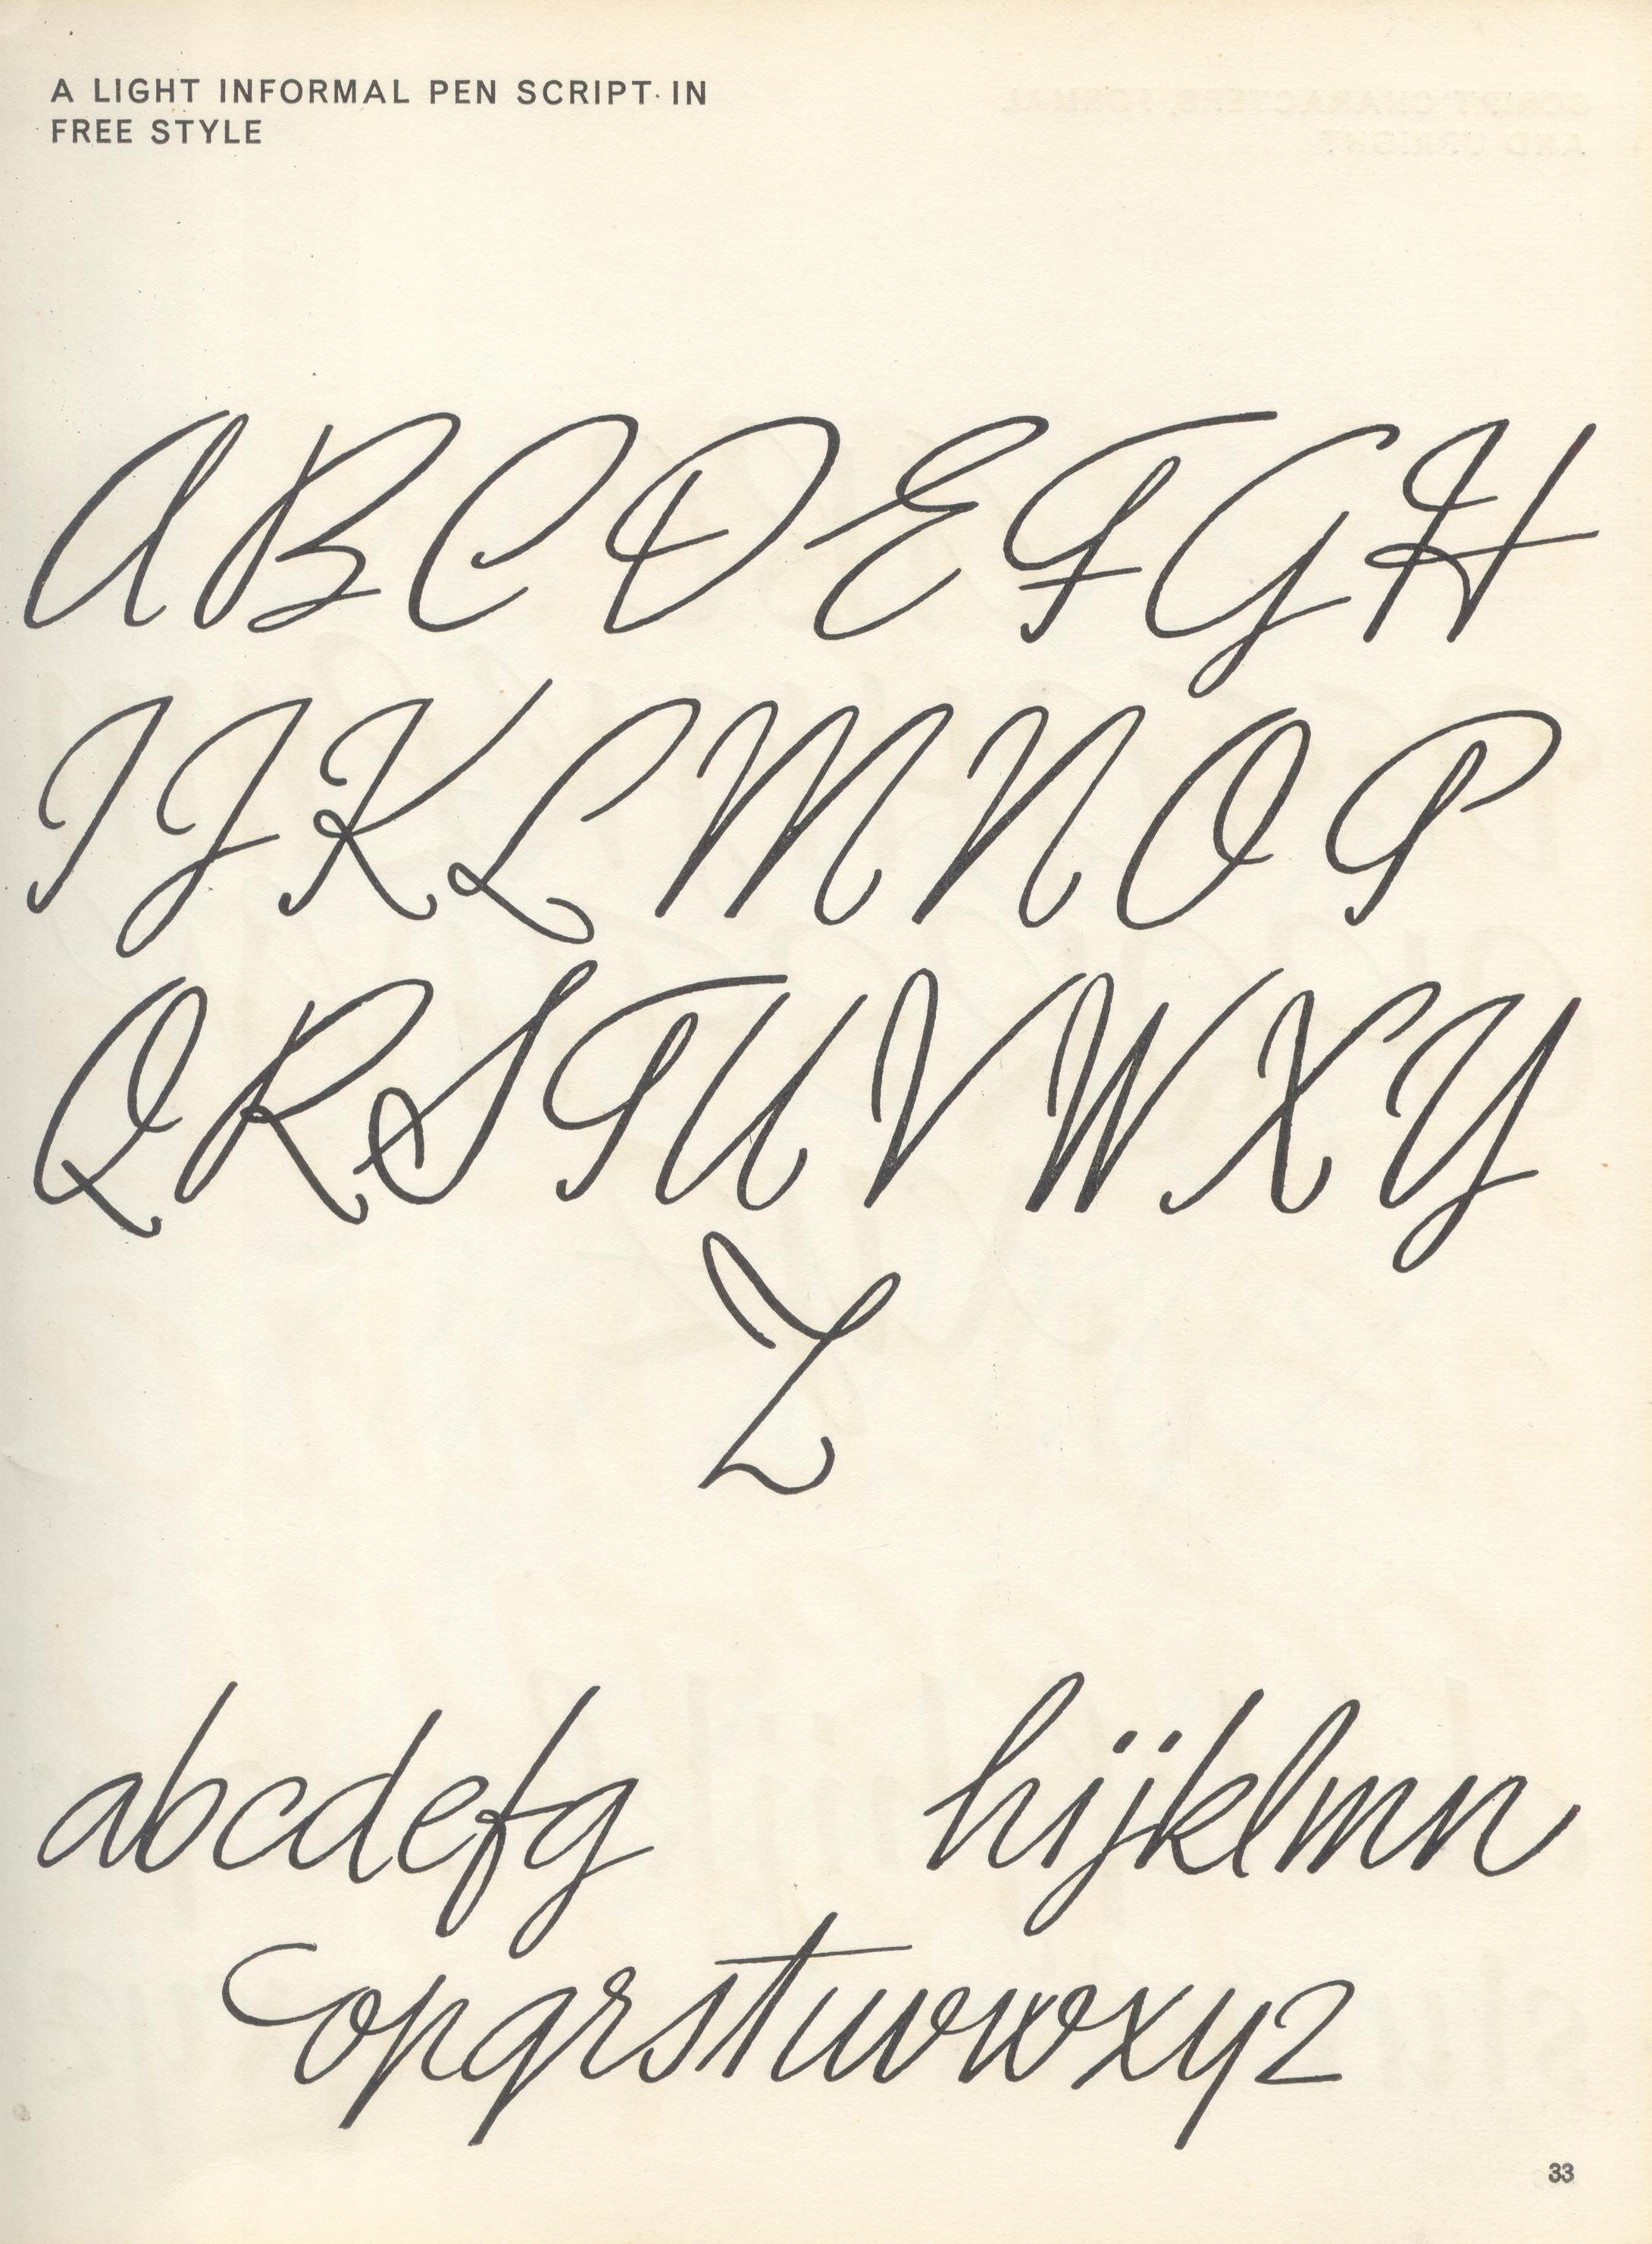 A LIGHT INFORMAL PEN SCRIPT IN
FREE STYLE
ABCDEFGH
IJKLMNOP
QRSTUVWXY
Z
abcdefg hijklmn
opqrstuvwxyz
33